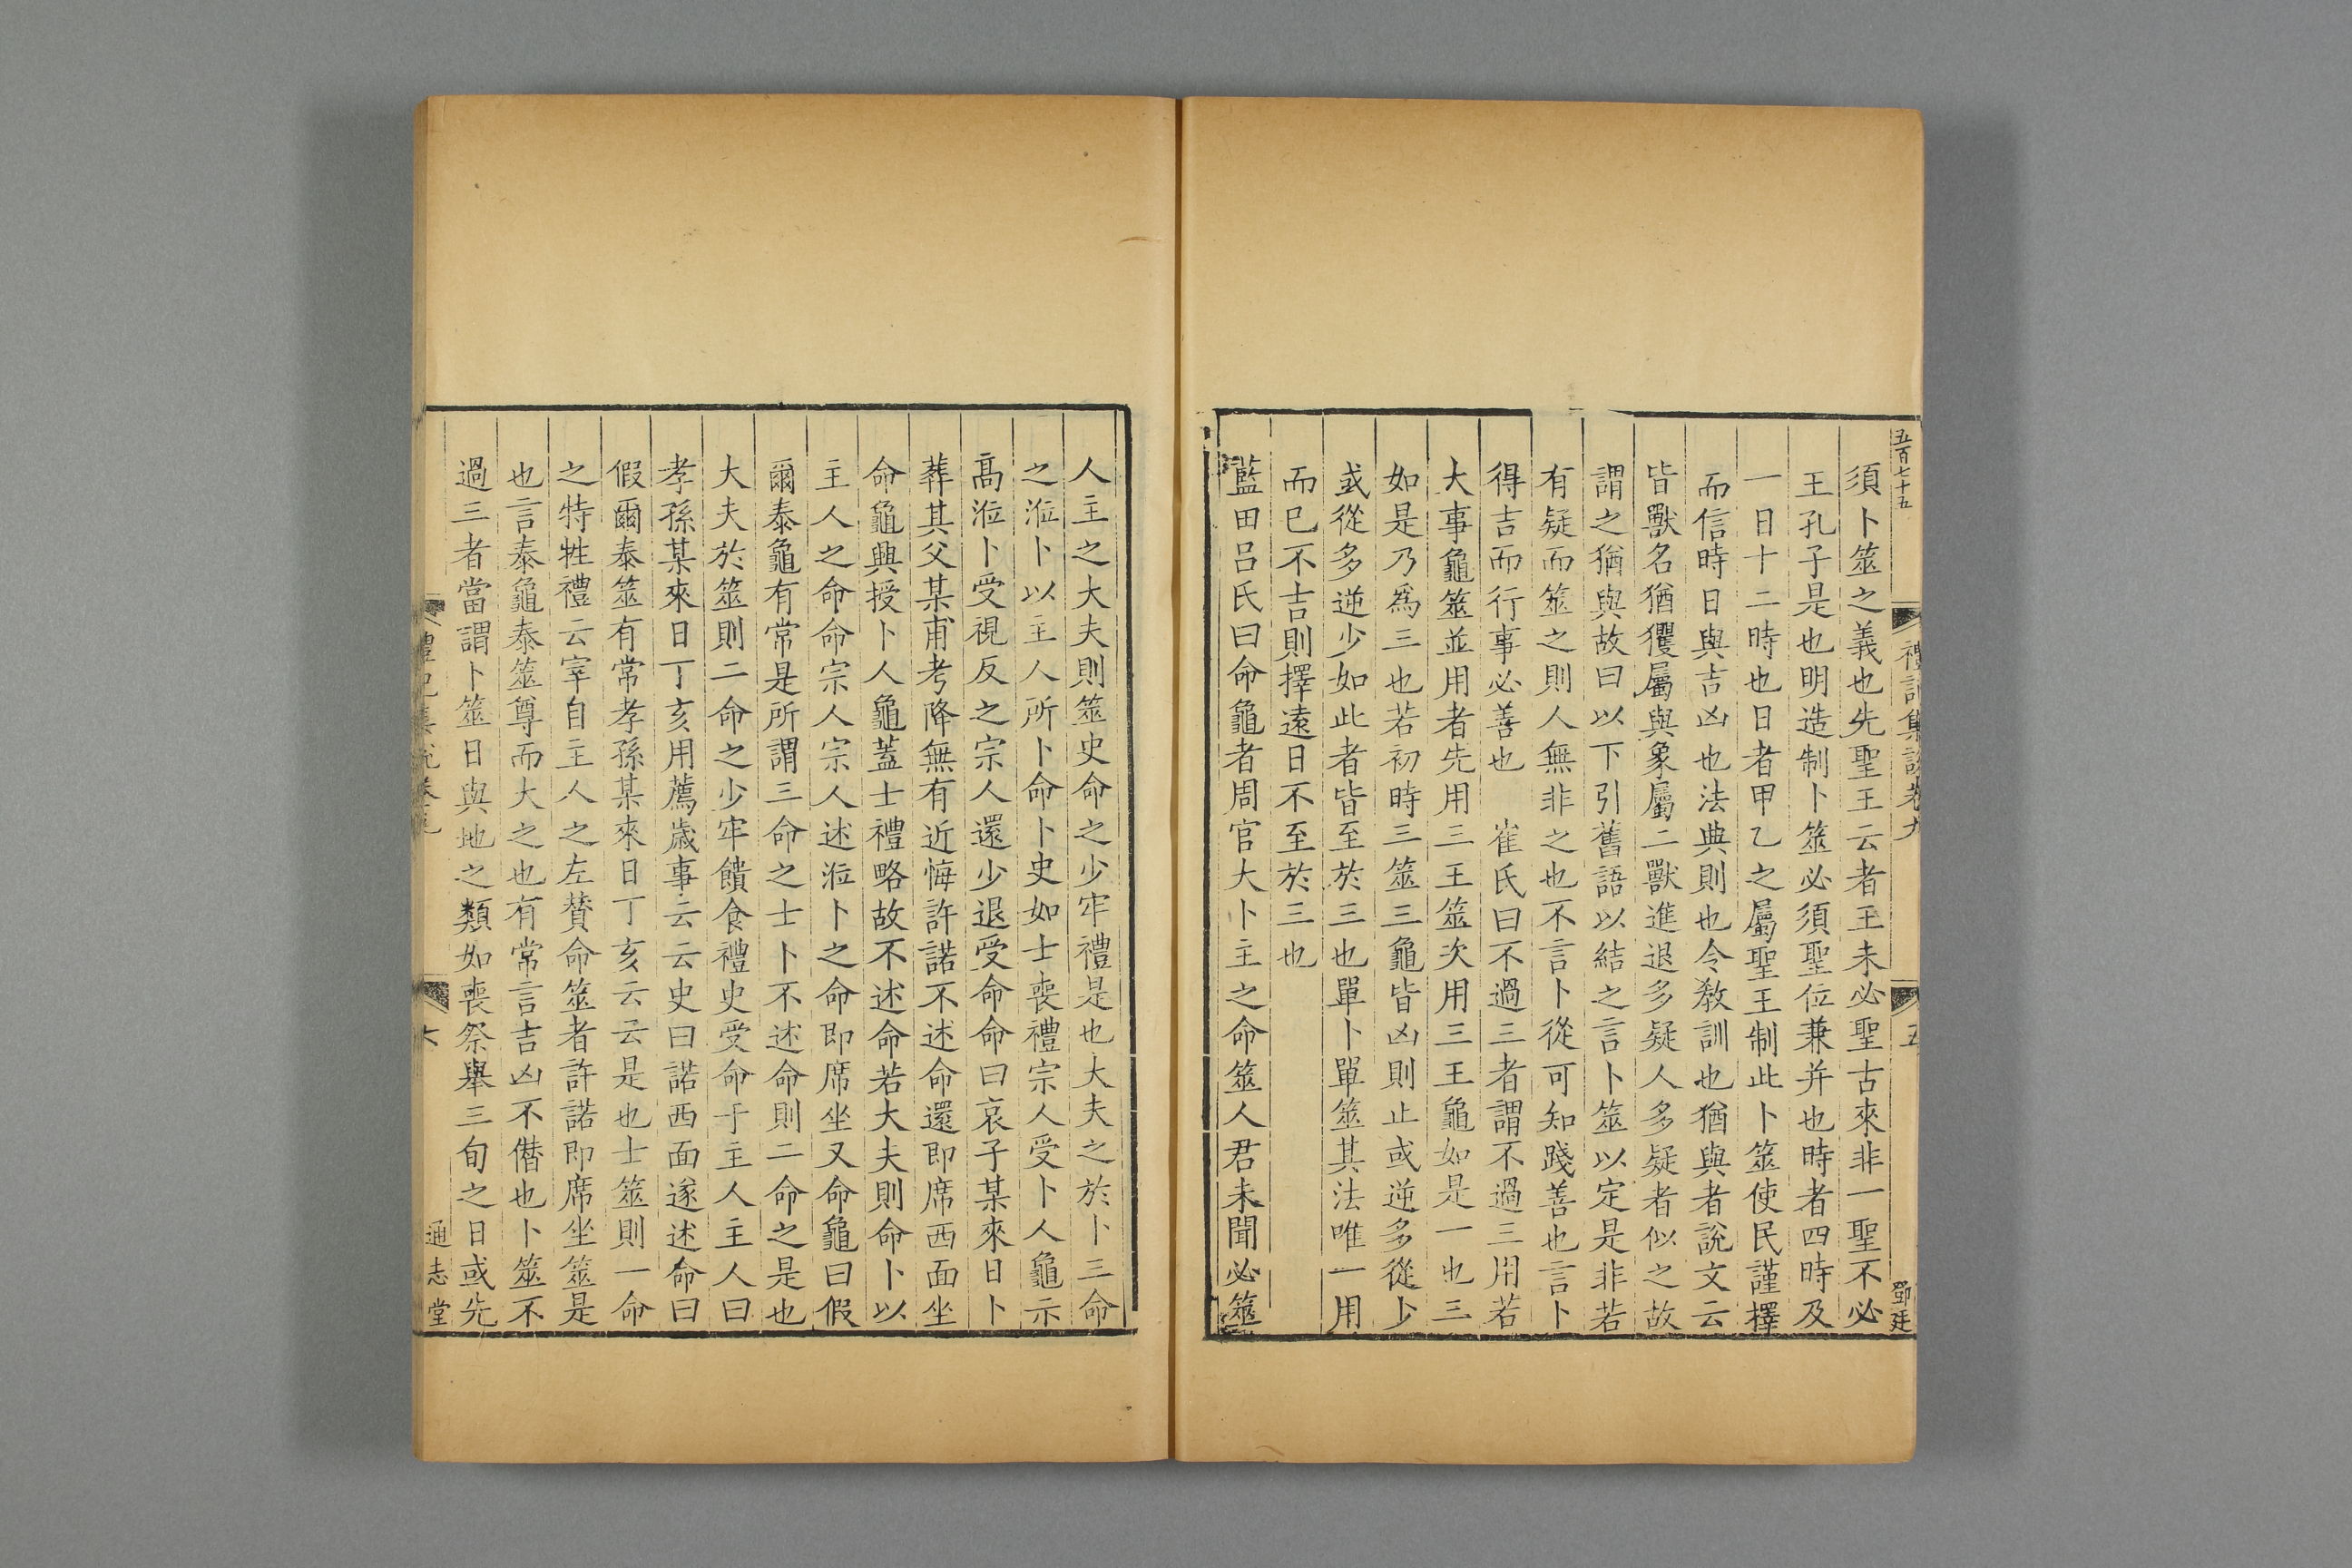 五百七十五
禮記集說卷九
五
鄧廷
須卜筮之義也先聖王云者王未必聖古來非一聖不必
王孔子是也明造制卜筮必須聖位兼并也時者四時及
一日十二時也日者甲乙之屬聖王制此卜筮使民謹擇
而信時日與吉凶也法典則也令敎訓也猶與者說文云
皆獸名猶玃屬與象屬二獸進退多疑人多疑者似之故
謂之猶與故曰以下引舊語以結之言卜筮以定是非若
有疑而筮之則人無非之也不言卜從可知踐善也言卜
得吉而行事必善也 崔氏曰不過三者謂不過三用若
大事龜筮並用者先用三王筮次用三王龜如是一也三
如是乃爲三也若初時三筮三龜皆凶則止或逆多從少
或從多逆少如此者皆至於三也單卜單筮其法唯一用
而已不吉則擇遠日不至於三也
藍田呂氏曰命龜者周官大卜主之命筮人君未聞必筮
人主之大夫則筮史命之少牢禮是也大夫之於卜三命
之涖卜以主人所卜命卜史如士喪禮宗人受卜人龜示
高涖卜受視反之宗人還少退受命命曰哀子某來日卜
葬其父某甫考降無有近悔許諾不述命還即席西面坐
命龜興授卜人龜蓋士禮略故不述命若大夫則命卜以
主人之命命宗人宗人述涖卜之命即席坐又命龜曰假
爾泰龜有常是所謂三命之士卜不述命則二命之是也
大夫於筮則二命之少牢饋食禮史受命于主人主人曰
孝孫某來日丁亥用薦歲事云云史曰諾西面遂述命曰
假爾泰筮有常孝孫某來日丁亥云云是也士筮則一命
之特牲禮云宰自主人之左贊命筮者許諾即席坐筮是
也言泰龜泰筮尊而大之也有常言吉凶不僭也卜筮不
過三者當謂卜筮日與地之類如喪祭舉三旬之日或先
通志堂